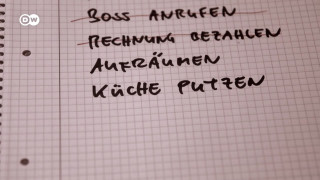 DW
BOSS ANRUFEN
RECHNUNG BEZAHLEN
AUFRÄUMEN
KÜCHE PUTZEN